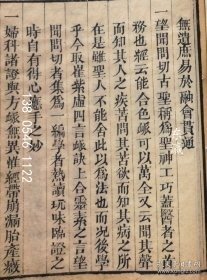 無遺庶易於融會貫通
一望聞問切古聖稱爲聖神工巧蓋醫者之真
務也經云能合色脈可以萬全又云聞其聲
而知其人之疾苦問其苦欲而知其病之所
在是雖聖人不能舍此以爲法也而况後學
乎今取崔紫虛四言脈訣上合靈素之言
聞問切者集爲一編學者熟讀玩味臨證之
時自有得心應手之妙
一婦科諸證與方脈無異惟經帶崩漏胎產癥